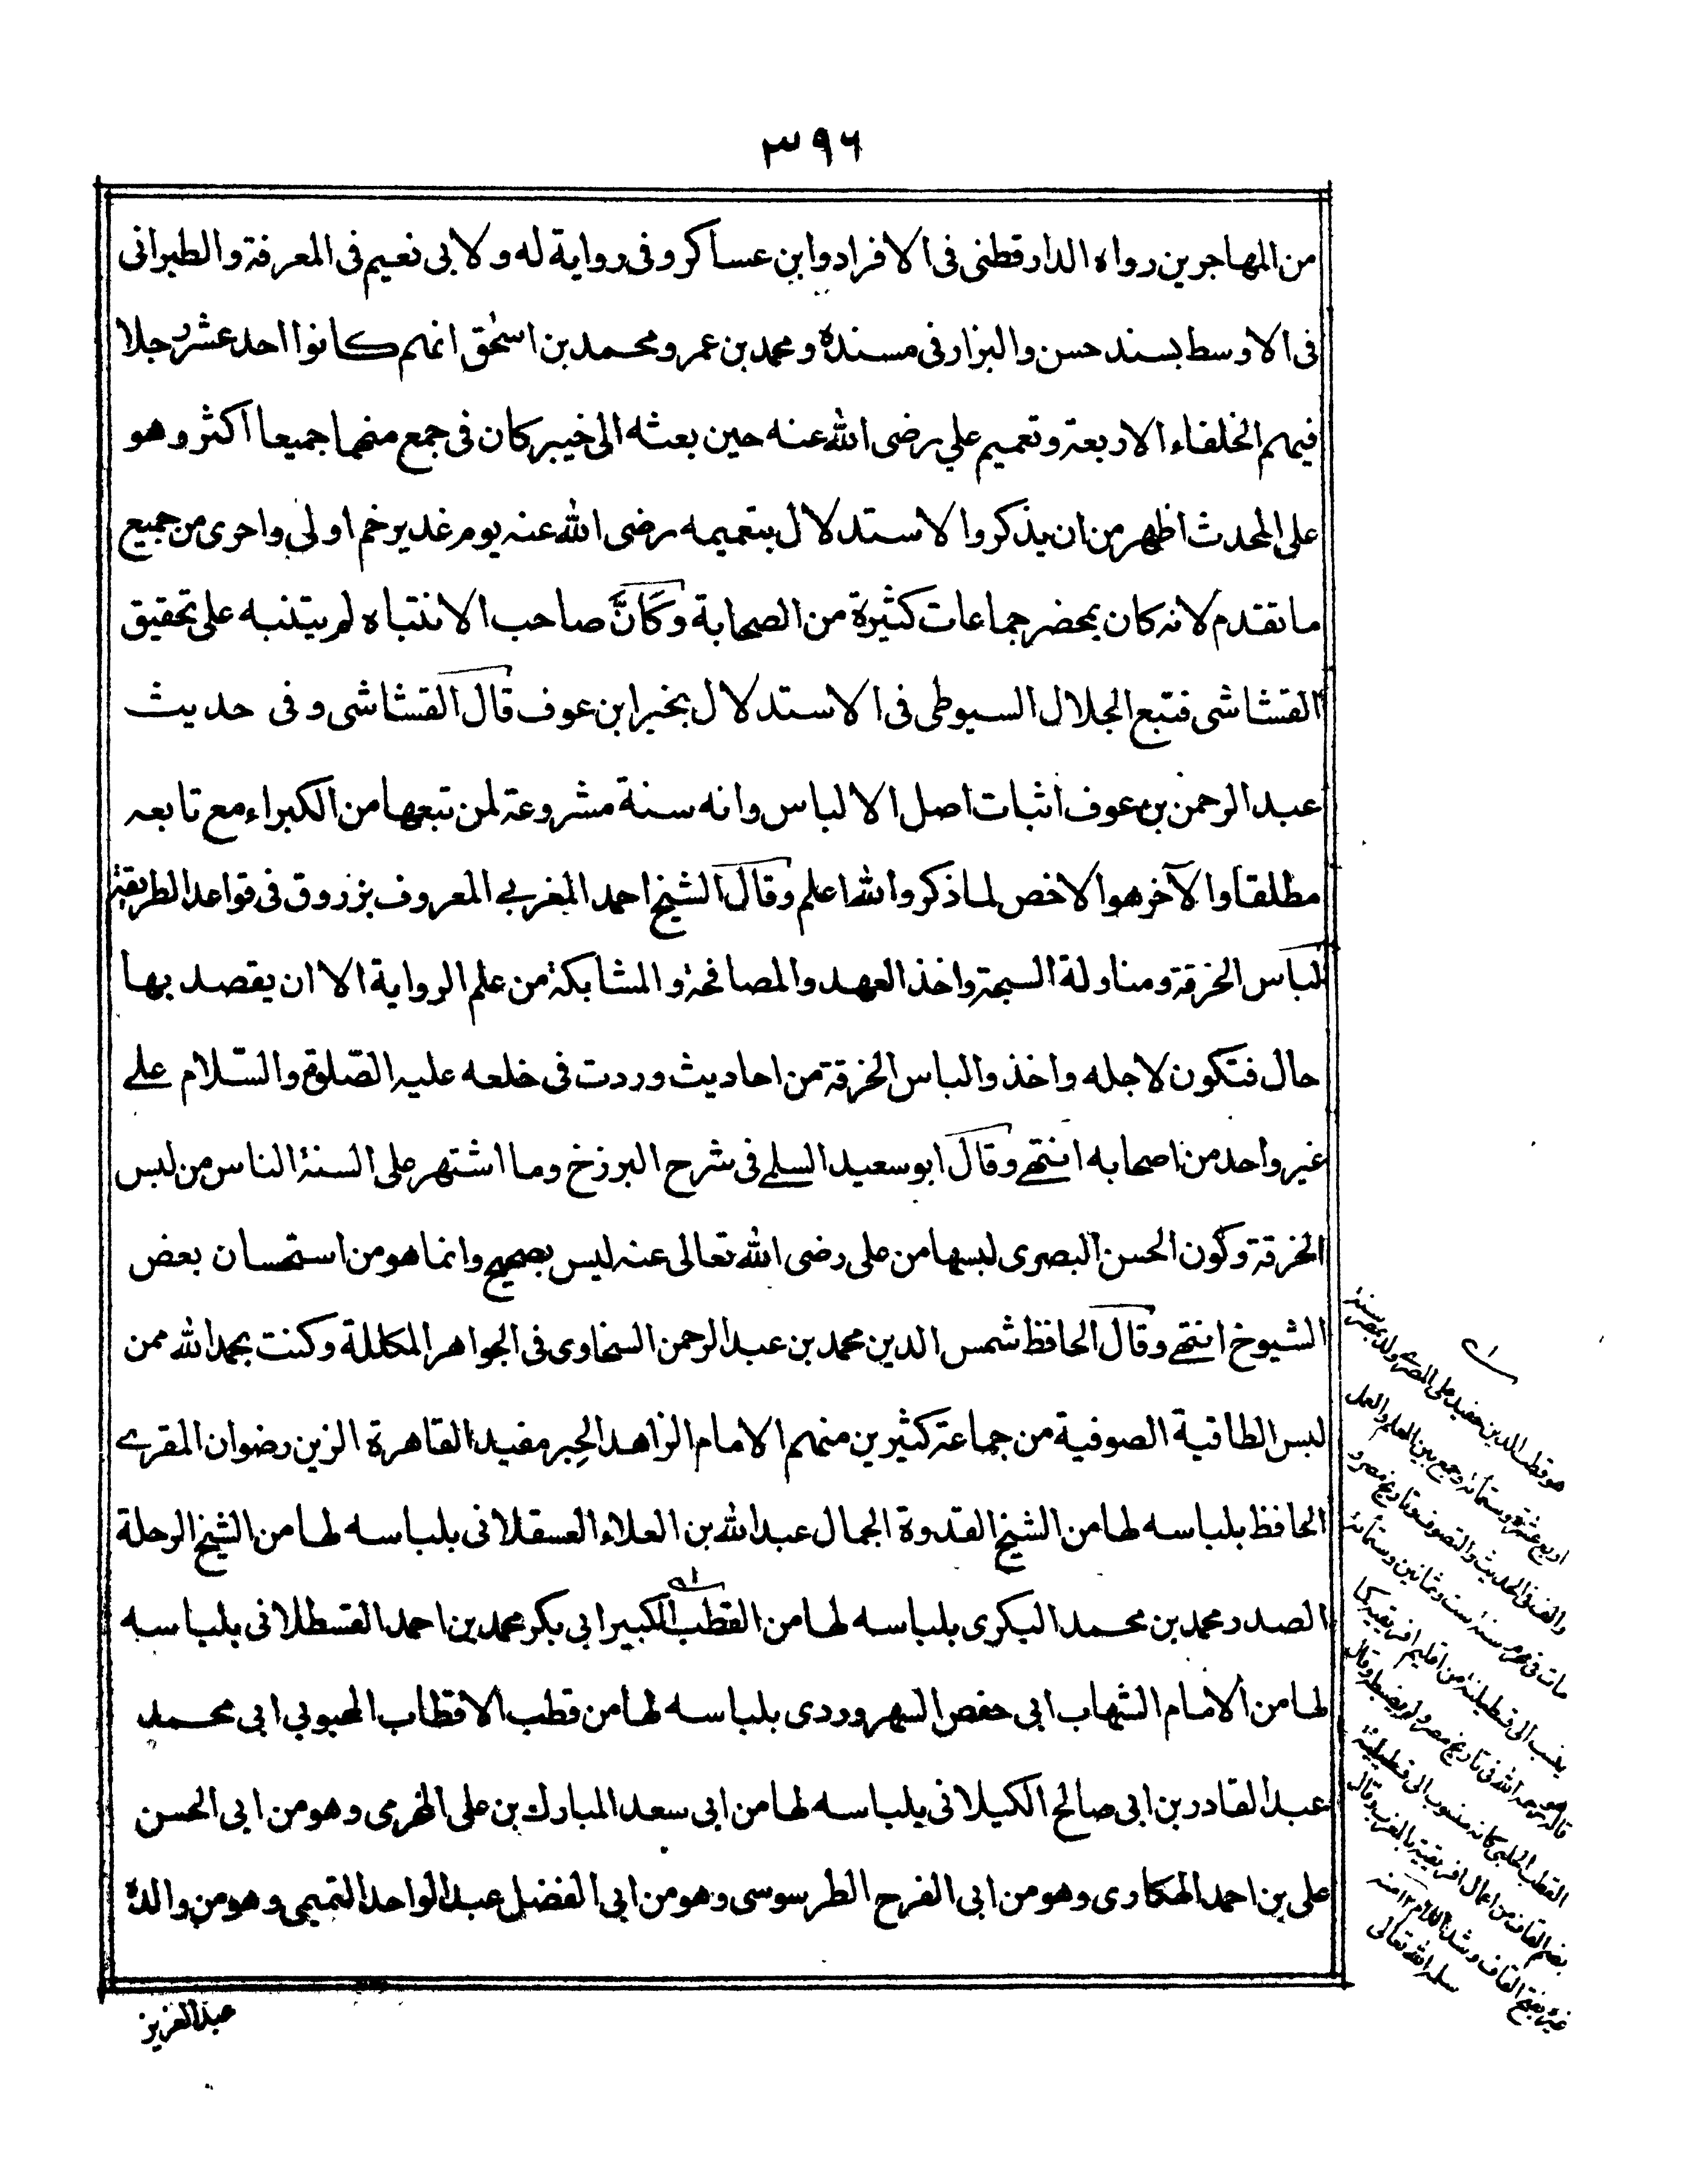 ٣٩٦
من المهاجرين رواه الدارقطنى فى الافراد وابن عساكر وفى رواية له ولابى نعيم فى المعرفة والطبرانى
فى الاوسط بسند حسن والبزار فى مسنده ومحمد بن عمر ومحمد بن اسحٰق انهم كانوا احد عشر رجلا
فيهم الخلفاء الاربعة وتعميم علي رضى الله عنه حين بعثه الى خيبر كان فى جمع منهما جميعا اكثر وهو
على المحدث اظهر من ان يذكر والاستدلال بتعميمه رضى الله عنه يوم غدير خم اولى واحرى من جميع
ما تقدم لانه كان بمحضر جماعات كثيرة من الصحابة وكَانَّ صاحب الانتباه لم يتنبه على تحقيق
القشاشى فتبع الجلال السيوطى فى الاستدلال بخبر ابن عوف قال القشاشى وفى حديث
عبد الرحمن بن عوف اثبات اصل الالباس وانه سنة مشروعة لمن تبعها من الكبراء مع تابعه
مطلقا والآخر هو الاخص لما ذكر والله اعلم وقال الشيخ احمد المغربي المعروف بزروق فى قواعد الطريقة
لباس الخرقة ومناولة السبحة واخذ العهد والمصافحة والمشابكة من علم الرواية الا ان يقصد بها
حال فتكون لاجله واخذ والباس الخرقة من احاديث وردت فى خلعه عليه الصّلوة والسّلام علے
غير واحد من اصحابه انتهے وقال ابو سعيد السلمے فى شرح البرزخ وما اشتهر على السنة الناس من لبس
الخرقة وكون الحسن البصرى لبسها من على رضى الله تعالى عنه ليس بصحيح وانما هو من استحسان بعض
الشيوخ انتهے وقال الحافظ شمس الدين محمد بن عبد الرحمن السخاوى فى الجواهر المكللة وكنت بحمد الله ممن
لبس الطاقية الصوفية من جماعة كثيرين منهم الامام الزاهد الحِبر مفيد القاهرة الزين رضوان المقرے
الحافظ بلباسه لها من الشيخ القدوة الجمال عبد الله بن العلاء العسقلانى بلباسه لها من الشيخ الرحلة
الصدر محمد بن محمد البكرى بلباسه لها من القطب الكبير ابى بكر محمد بن احمد القسطلانى بلباسه
لها من الامام الشهاب ابى حفص السهروردى بلباسه لها من قطب الاقطاب المحبوبي ابى محمد
عبد القادر بن ابى صالح الكيلانى بلباسه لها من ابى سعد المبارك بن على المخرمى وهو من ابى الحسن
على بن احمد الهكاوى وهو من ابى الفرح الطرسوسى وهو من ابى الفضل عبد الواحد التميمى وهو من والده
عبد العزيز
هو قطب الدين حفيد على المصرے ولد بمصر سنة
اربع عشرة وستمائة وجمع بين العلم والعمل
والف فى الحديث والتصوف وتاريخ مصر و
مات فى محرم سنة ست وثمانين وستمائة
ينسب الى قسطيلنة من اقليم افريقية كما
قاله رحمه الله فى تاريخ مصر ولم يضبط وقال
القطب الحلبى كانه منسوب الى قسطيلية
بضم القاف من اعمال افريقية بالمغرب وقال
غيره بفتح القاف وشد اللام ١٢ منه
سلمه الله تعالى